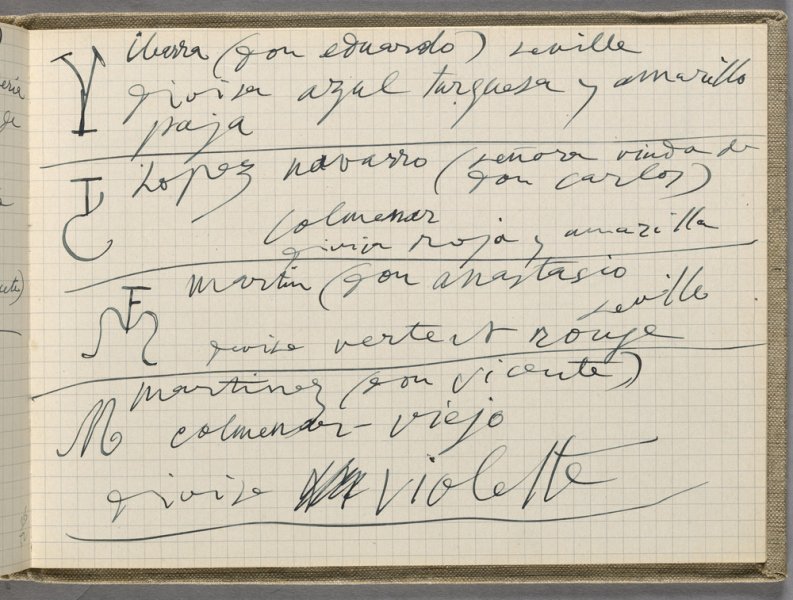 ibarra (don eduardo) seville
divisa azul turquesa y amarillo
paja
Lopez navarro (señora viuda de
don carlos)
colmenar
divisa roja y amarilla
martin (don anastasio
seville
devise vert et rouge
martinez (don vicente)
colmenar-viejo
divise violette